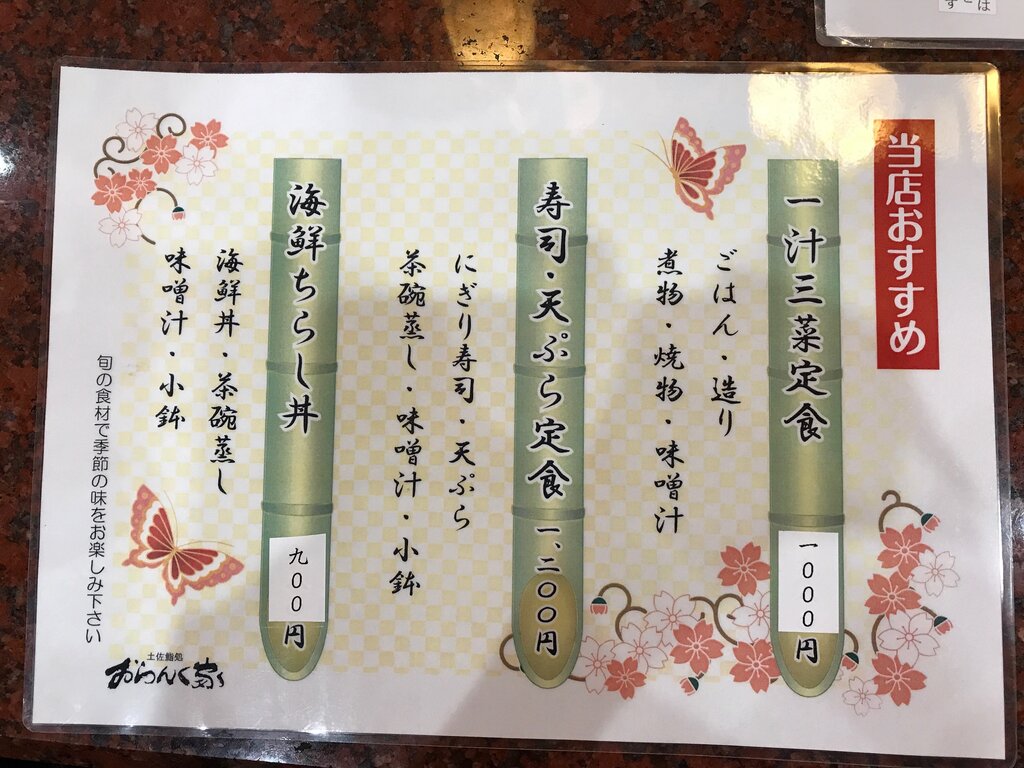 当店おすすめ
一汁三菜定食
一000円
ごはん・造り
煮物・焼物・味噌汁
寿司・天ぷら定食
一、二00円
にぎり寿司・天ぷら
茶碗蒸し・味噌汁・小鉢
海鮮ちらし丼
九00円
海鮮丼・茶碗蒸し
味噌汁・小鉢
旬の食材で季節の味をお楽しみ下さい
土佐鮨処
おらんく家